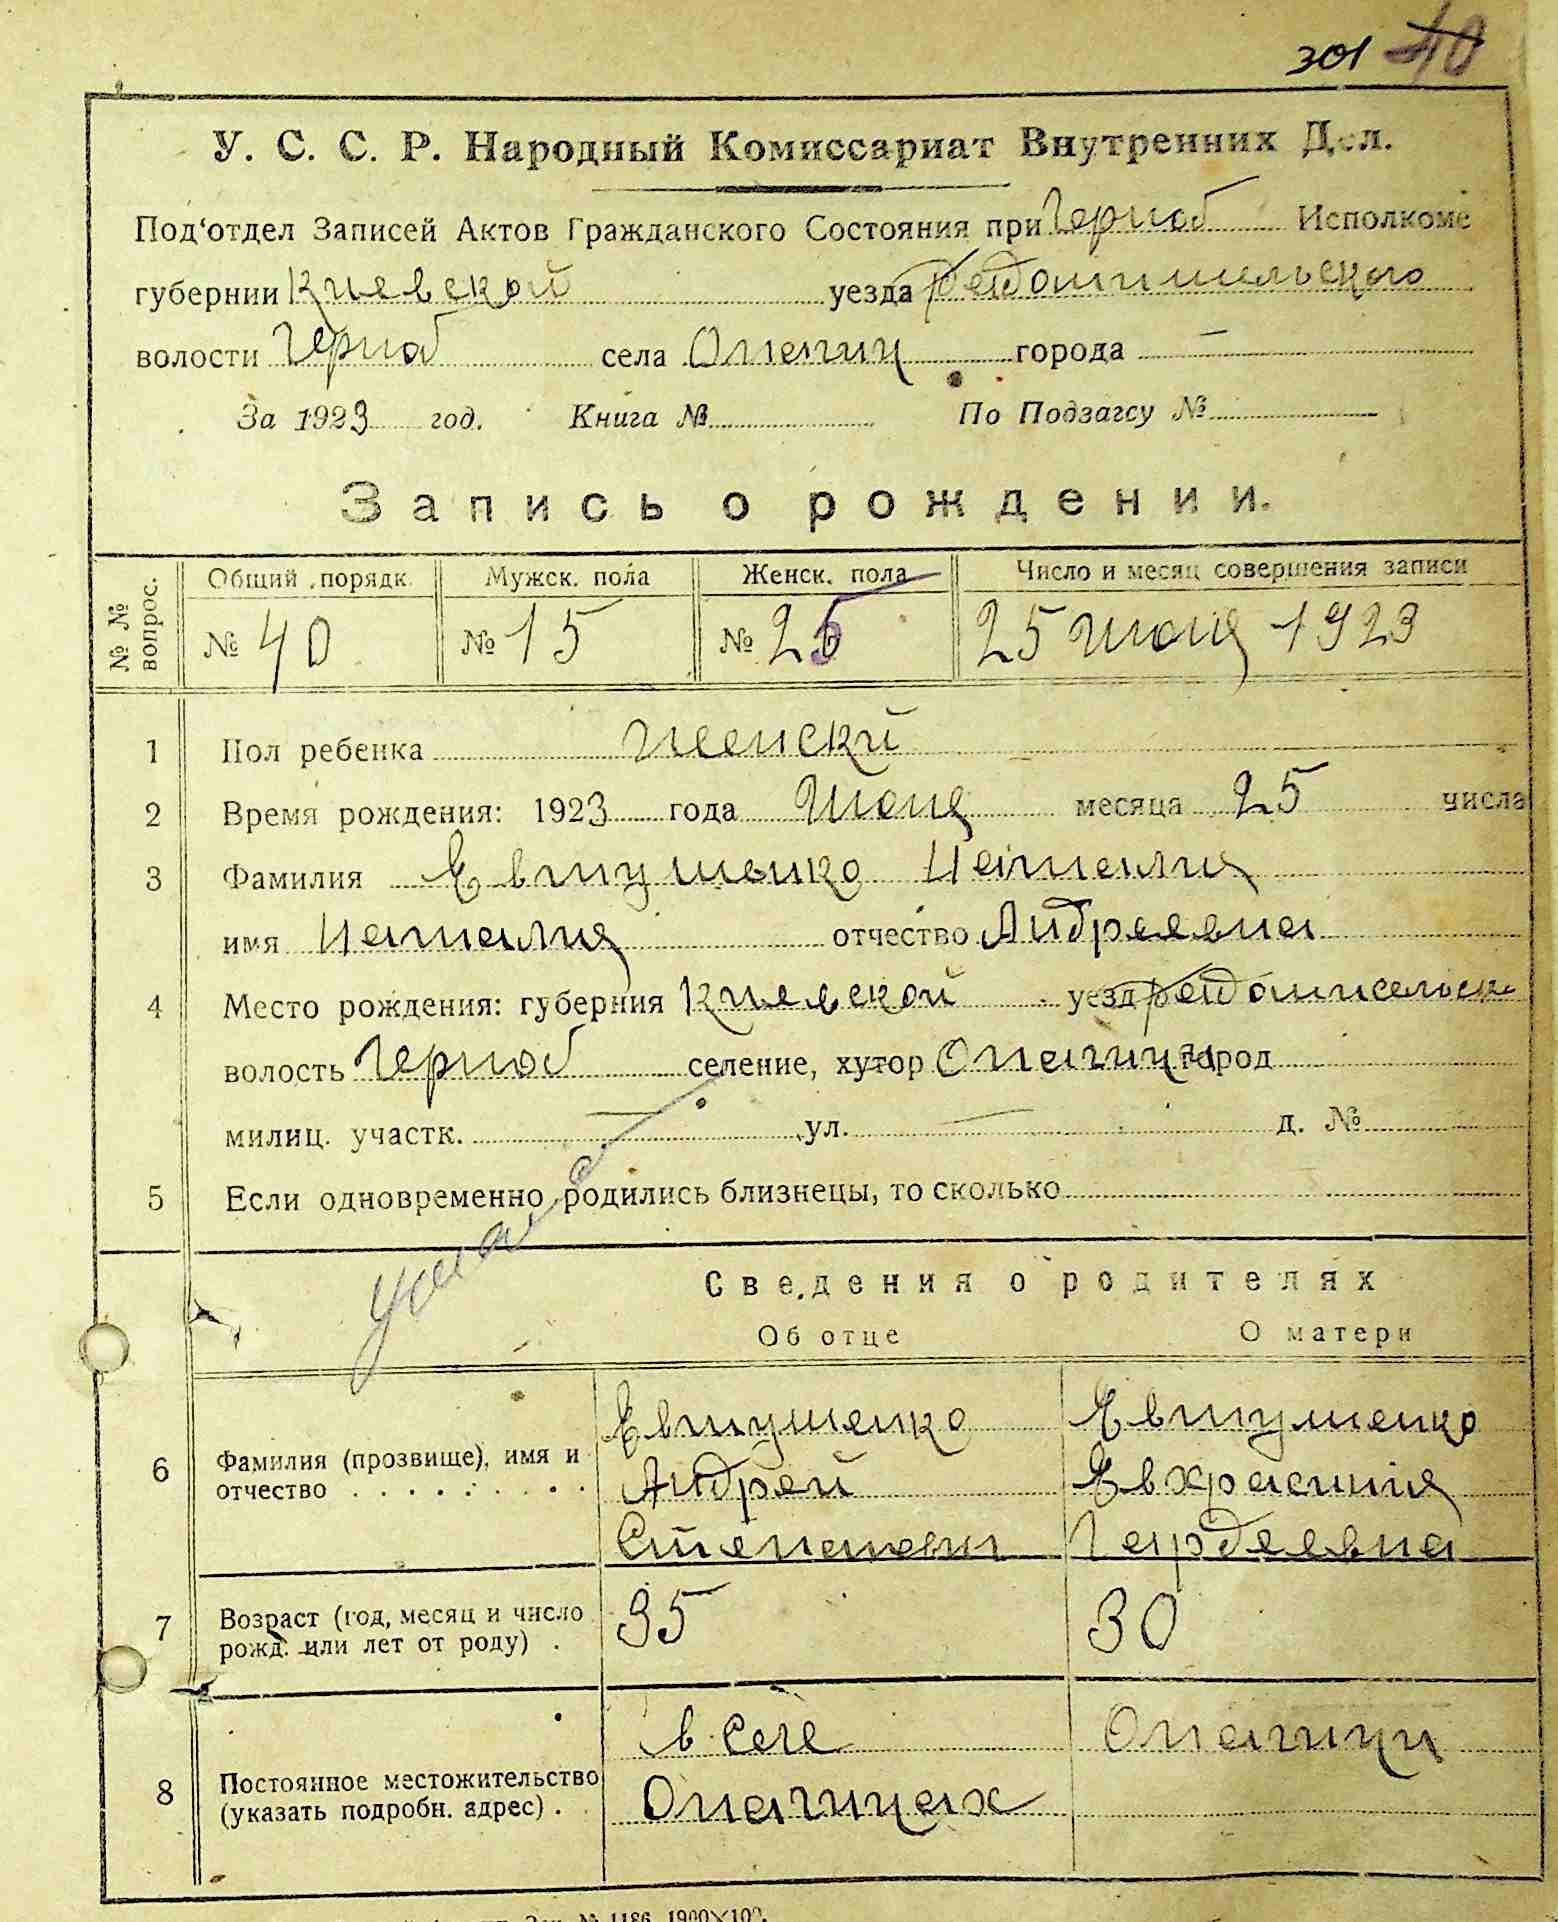 301 40
У. С. С. Р. Народный Комиссариат Внутренних Дел.
Под'отдел Записей Актов Гражданского Состояния при Черноб Исполкоме
губернии Киевской уезда
волости Черноб села города —
За 1923 год. Книга № По Подзагсу №
Запись о рождении.
№ № вопрос. Общий порядк. Мужск. пола Женск. пола Число и месяц совершения записи
№ 40 № 15 № 25 25 Июня 1923
1 Пол ребенка женский
2 Время рождения: 1923 года Июня месяца 25 числа
3 Фамилия Евтушенко Наталия
имя Наталия отчество Андреевна
4 Место рождения: губерния Киевской уезд
волость Черноб селение, хутор Опачичи город
милиц. участк. — ул. — д. №
5 Если одновременно родились близнецы, то сколько
Сведения о родителях
Об отце О матери
6 Фамилия (прозвище), имя и отчество Евтушенко Евтушенко
Андрей
Степанович
7 Возраст (год, месяц и число рожд. или лет от роду) 35 30
8 Постоянное местожительство (указать подробн. адрес) в селе Опачичи
Опачичах
№ 1186